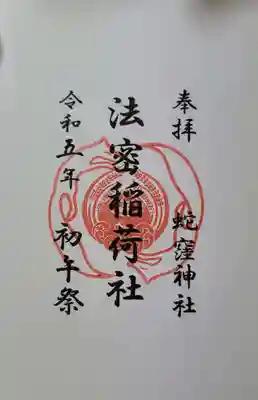 奉拝 蛇窪神社
法密稲荷社
令和五年 初午祭